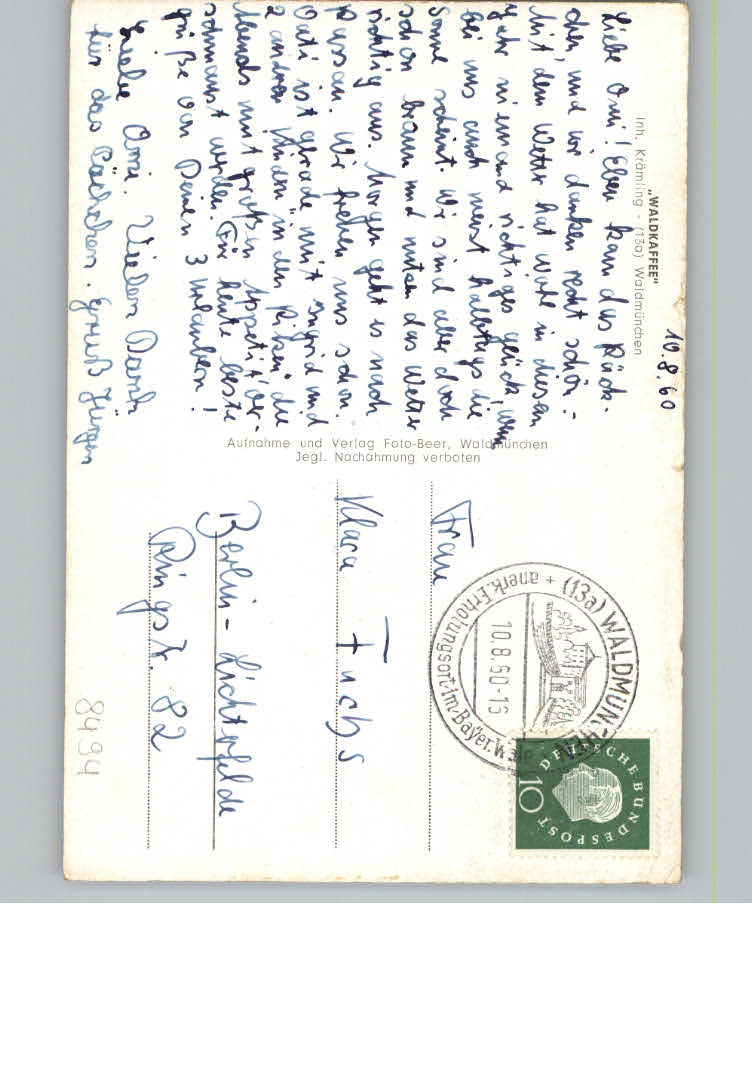 „WALDKAFFEE"
Inh. Krämling - (13a) Waldmünchen
10.8.60
Liebe Omi! Eben kam das Päck-
chen, und wir danken recht schön.
Mit dem Wetter hat wohl in diesem
Jahr niemand richtiges Glück, wenn
bei uns auch meist halbtags die
Sonne scheint. Wir sind aber doch
schon braun und nutzen das Wetter
richtig aus. Morgen geht es nach
Passau. Wir freuen uns schon.
Vati ist gerade mit Ingrid und
2 anderen Kindern in den Pilzen, die
Abends mit großem Appetit ver-
schmaust werden. Für heute beste
Grüße von Deinen 3 Urlaubern!
Liebe Omi. Vielen Dank
für das Päckchen. Gruß Jürgen
Aufnahme und Verlag Foto-Beer, Waldmünchen
Jegl. Nachahmung verboten
Frau
Klara Fuchs
Berlin-Lichterfelde
Ringstr. 82
(13a) WALDMÜNCHEN
anerk. Erholungsort im Bayer. Wald +
10.8.60-15
DEUTSCHE BUNDESPOST
10
8494